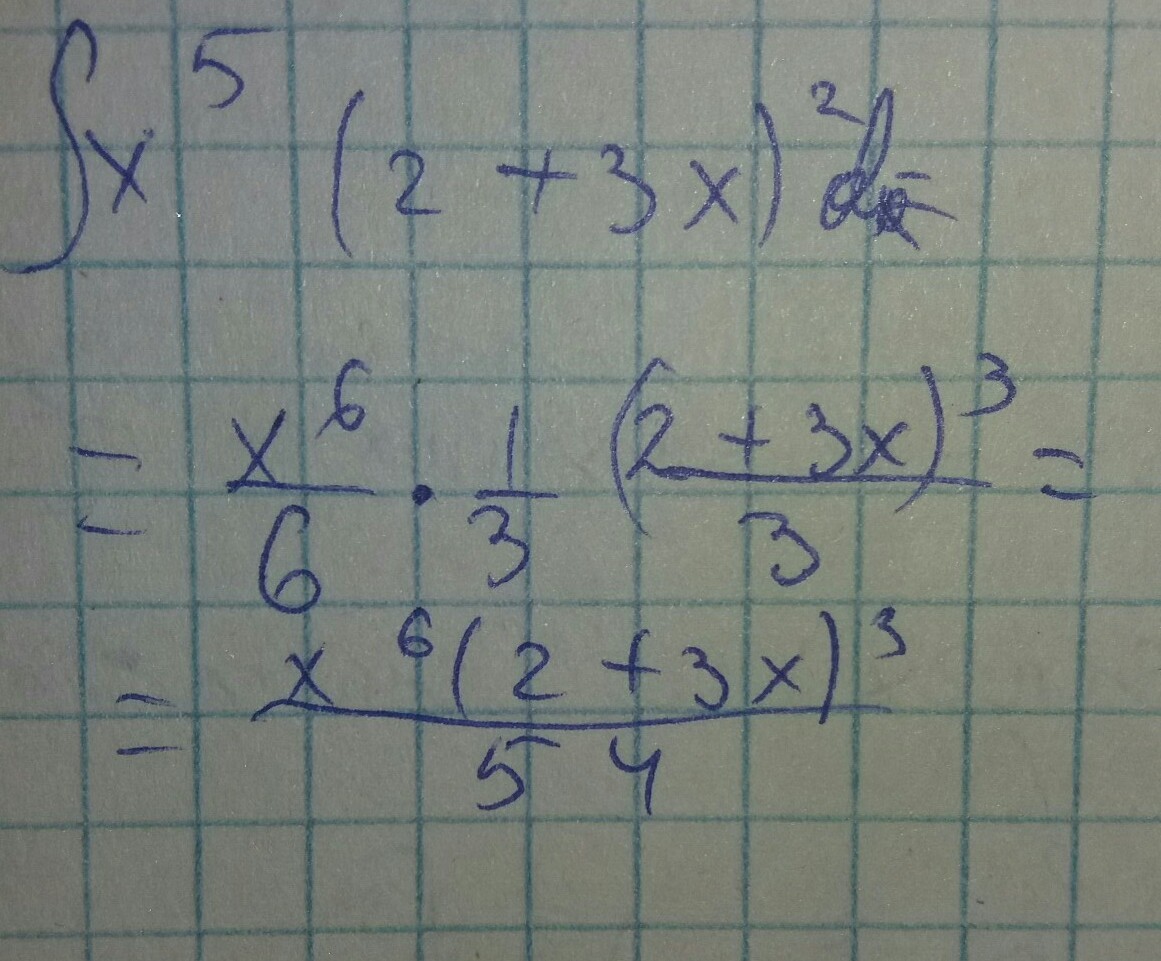 ∫x⁵ (2 + 3x)² dx
= x⁶/6 · 1/3 (2 + 3x)³/3 =
= x⁶(2 + 3x)³/54